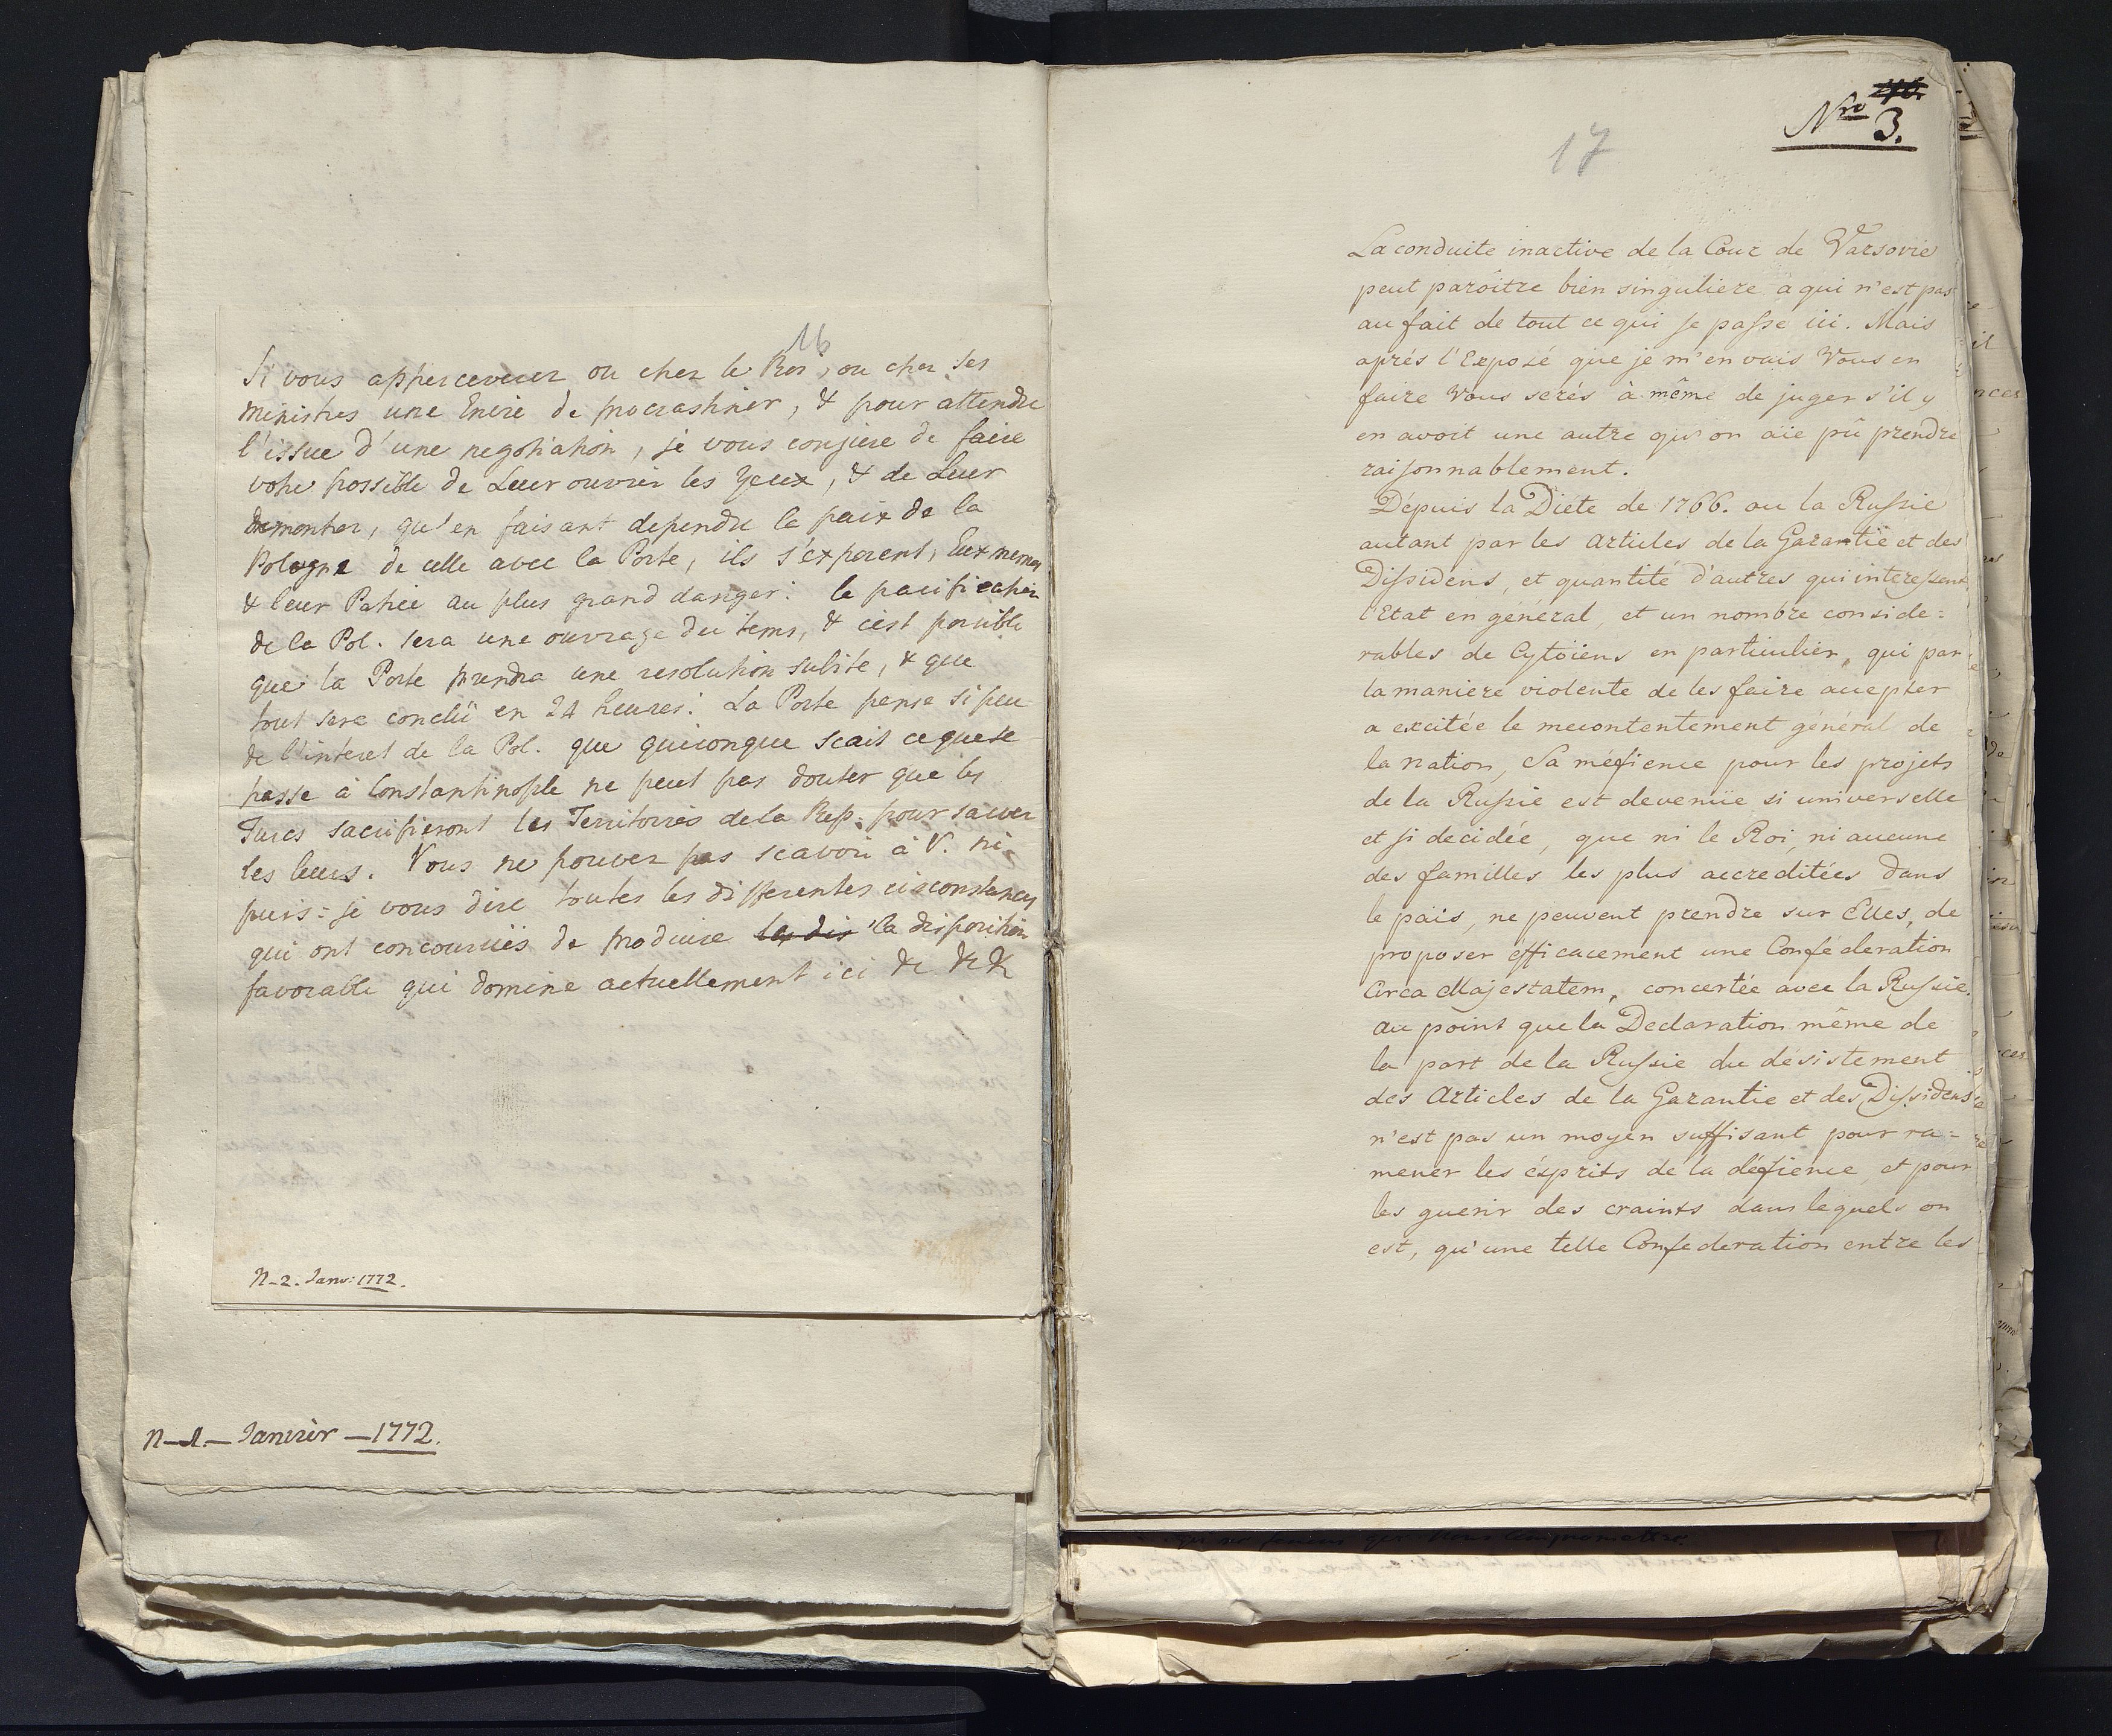 16
Si vous appercevez ou chez le Roi, ou chez ses
ministres une Envie de procrastiner, & pour attendre
l'issue d'une negotiation, je vous conjure de faire
votre possible de Leur ouvrir les Yeux, & de Leur
demontrer, qu'en faisant dependre la paix de la
Pologne de celle avec la Porte, ils s'exposent, Eux memes
& leur Patrie au plus grand danger: la pacification
de la Pol. sera une ouvrage du tems, & c'est possible
que la Porte prendra une resolution subite, & que
tout sera conclû en 24 heures: La Porte pense si peu
de l'interet de la Pol. que quiconque scait ce que se
passe à Constantinople ne peut pas douter que les
Turcs sacrifieront les Territoires de la Rep: pour sauver
les leurs. Vous ne pouvez pas scavoir à V. ni
puis-je vous dire toutes les differentes circonstances
qui ont concourues de produire les dis la disposition
favorable qui domine actuellement ici &c &c &c
N-2. Janv: 1772.
N-1.- Janvièr -1772.
Nro 3.
17
La conduite inactive de la Cour de Varsovie
peut paroître bien singuliere a qui n'est pas
au fait de tout ce qui se passe ici. Mais
aprés l'Exposé que je m'en vais Vous en
faire Vous serés à même de juger s'il y
en avoit une autre qu'on aïe pû prendre
raisonnablement.
Dépuis la Diéte de 1766. ou la Russie
autant par les articles de la Garantie et des
Dissidens, et quantité d'autres qui interessent
l'Etat en général, et un nombre conside=
rables de Cytoiens en particulier, qui par
la maniere violente de les faire accepter
a excitée le mecontentement général de
la nation, Sa méfience pour les projets
de la Russie est devenüe si universelle
et si decidée, que ni le Roi, ni aucune
des familles les plus accreditées dans
le païs, ne peuvent prendre sur Elles, de
proposer éfficacement une Conféderation
Circa Majestatem, concertée avec la Russie.
au point que la Declaration même de
la part de la Russie du désistement
des Articles de la Garantie et des Dissidens
n'est pas un moyen suffisant pour ra=
mener les ésprits de la défience, et pour
les guerir des craints dans lequels on
est, qu'une telle Confederation entre les